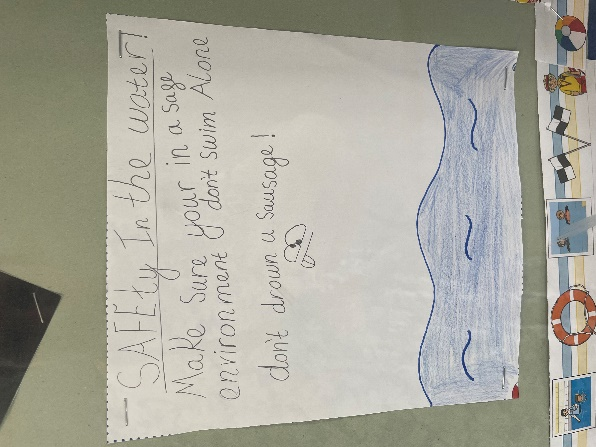 SAFEty In the water!
Make Sure your in a sage
environment don't swim Alone
don't drown u sausage!